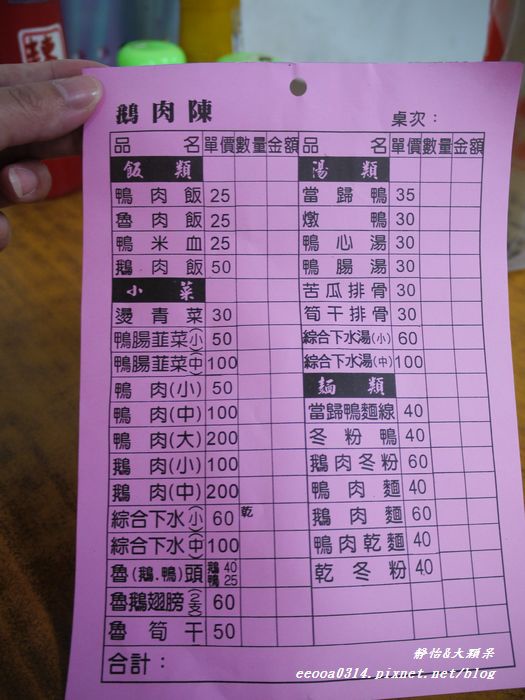 鵝肉陳 桌次：
品名 單價 數量 金額 品名 單價 數量 金額
飯類
鴨肉飯 25
魯肉飯 25
鴨米血 25
鵝肉飯 50
小菜
燙青菜 30
鴨腸韮菜(小) 50
鴨腸韮菜(中) 100
鴨肉(小) 50
鴨肉(中) 100
鴨肉(大) 200
鵝肉(小) 100
鵝肉(中) 200
綜合下水(小) 60 乾
綜合下水(中) 100
魯(鵝.鴨)頭 鵝 40 鴨 25
魯鵝翅膀(2支) 60
魯筍干 50
湯類
當歸鴨 35
燉鴨 30
鴨心湯 30
鴨腸湯 30
苦瓜排骨 30
筍干排骨 30
綜合下水湯(小) 60
綜合下水湯(中) 100
麵類
當歸鴨麵線 40
冬粉鴨 40
鵝肉冬粉 60
鴨肉麵 40
鵝肉麵 60
鴨肉乾麵 40
乾冬粉 40
合計：
靜怡&大顆呆
eeooa0314.pixnet.net/blog